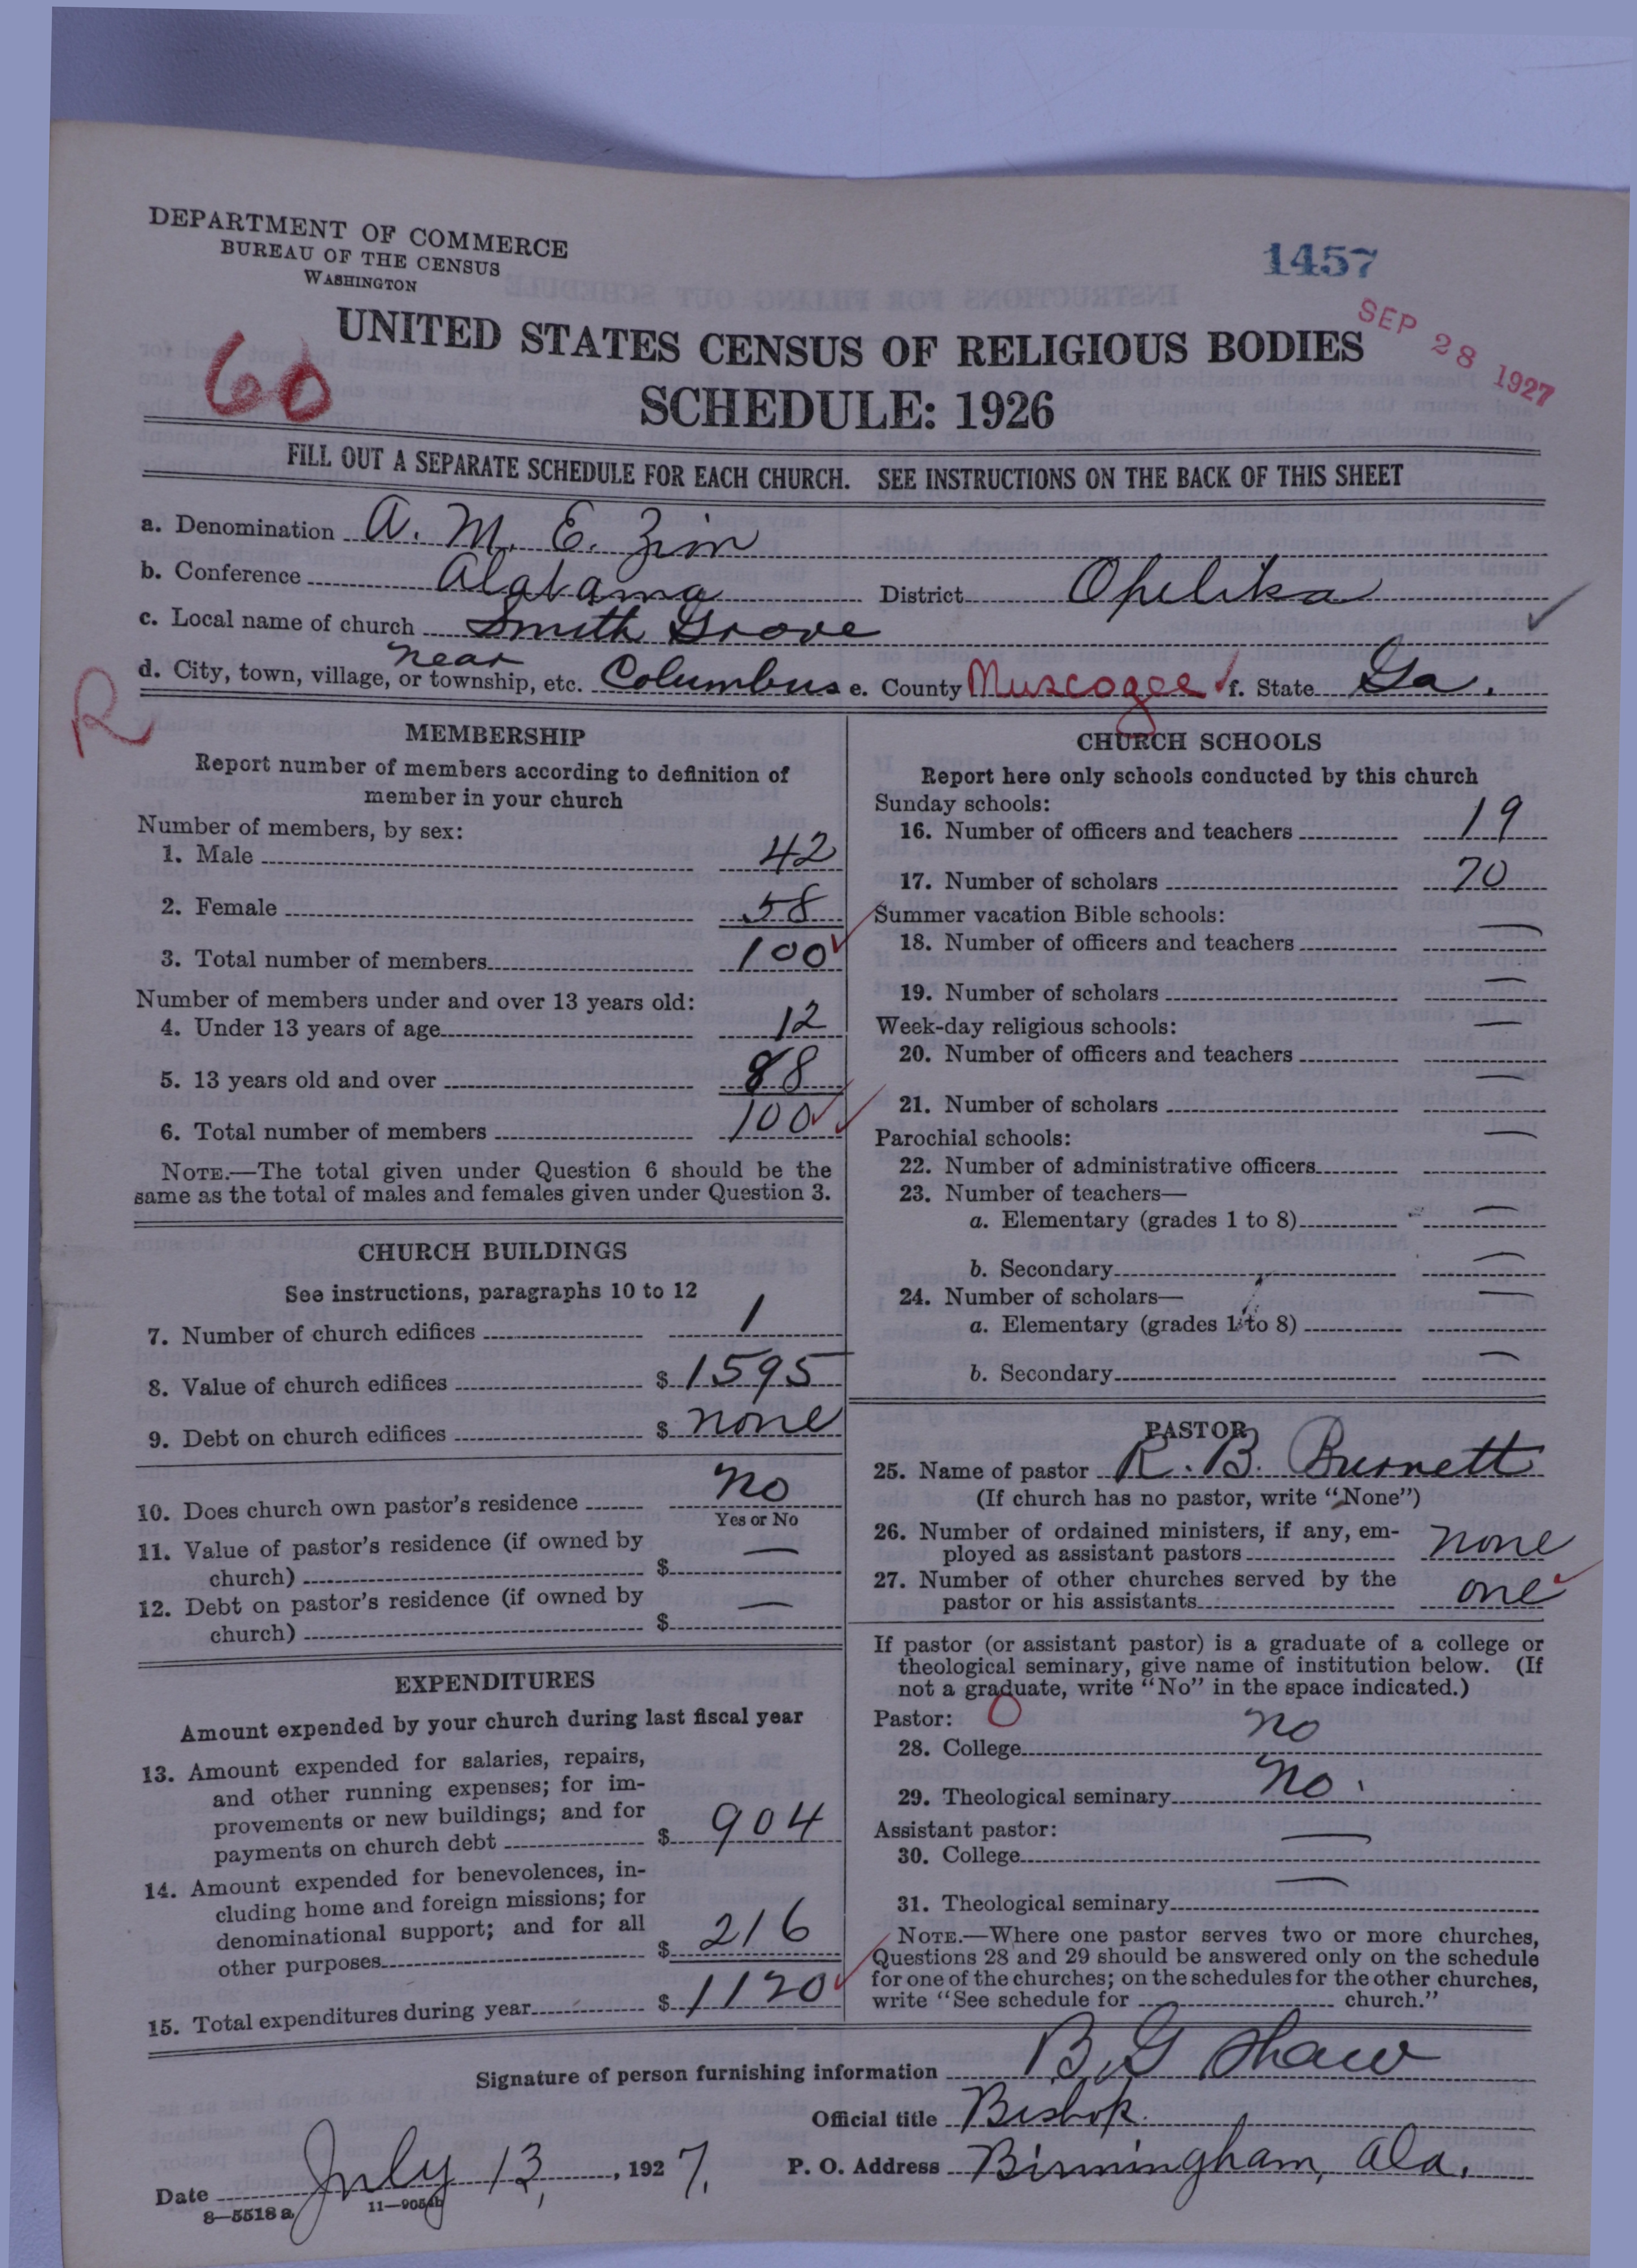 DEPARTMENT OF COMMERCE
BUREAU OF THE CENSUS
WASHINGTON
1457
SEP 28 1927
60
UNITED STATES CENSUS OF RELIGIOUS BODIES
SCHEDULE: 1926
FILL OUT A SEPARATE SCHEDULE FOR EACH CHURCH. SEE INSTRUCTIONS ON THE BACK OF THIS SHEET
a. Denomination A. M. E. Zion
b. Conference Alabama District Opelika
c. Local name of church Smith Grove
d. City, town, village, or township, etc. near Columbus e. County Muscogee f. State Ga.
R
MEMBERSHIP
Report number of members according to definition of
member in your church
Number of members, by sex:
1. Male 42
2. Female 58
3. Total number of members 100
Number of members under and over 13 years old:
4. Under 13 years of age 12
5. 13 years old and over 88
6. Total number of members 100
NOTE.—The total given under Question 6 should be the
same as the total of males and females given under Question 3.
CHURCH BUILDINGS
See instructions, paragraphs 10 to 12
7. Number of church edifices 1
8. Value of church edifices $ 1595
9. Debt on church edifices $ none
10. Does church own pastor's residence no
Yes or No
11. Value of pastor's residence (if owned by
church) $ —
12. Debt on pastor's residence (if owned by
church) $ —
EXPENDITURES
Amount expended by your church during last fiscal year
13. Amount expended for salaries, repairs,
and other running expenses; for im-
provements or new buildings; and for
payments on church debt $ 904
14. Amount expended for benevolences, in-
cluding home and foreign missions; for
denominational support; and for all
other purposes $ 216
15. Total expenditures during year $ 1120
CHURCH SCHOOLS
Report here only schools conducted by this church
Sunday schools:
16. Number of officers and teachers 19
17. Number of scholars 70
Summer vacation Bible schools:
18. Number of officers and teachers —
19. Number of scholars —
Week-day religious schools:
20. Number of officers and teachers —
21. Number of scholars —
Parochial schools:
22. Number of administrative officers —
23. Number of teachers—
a. Elementary (grades 1 to 8) —
b. Secondary —
24. Number of scholars—
a. Elementary (grades 1 to 8) —
b. Secondary —
PASTOR
25. Name of pastor R. B. Burnett
(If church has no pastor, write "None")
26. Number of ordained ministers, if any, em-
ployed as assistant pastors none
27. Number of other churches served by the
pastor or his assistants one
If pastor (or assistant pastor) is a graduate of a college or
theological seminary, give name of institution below. (If
not a graduate, write "No" in the space indicated.)
Pastor: O
28. College no
29. Theological seminary no.
Assistant pastor:
30. College —
31. Theological seminary —
NOTE.—Where one pastor serves two or more churches,
Questions 28 and 29 should be answered only on the schedule
for one of the churches; on the schedules for the other churches,
write "See schedule for church."
Signature of person furnishing information B. G Shaw
Official title Bishop.
Date July 13, 1927. P. O. Address Birmingham, Ala.
8—5518 a 11—9054b